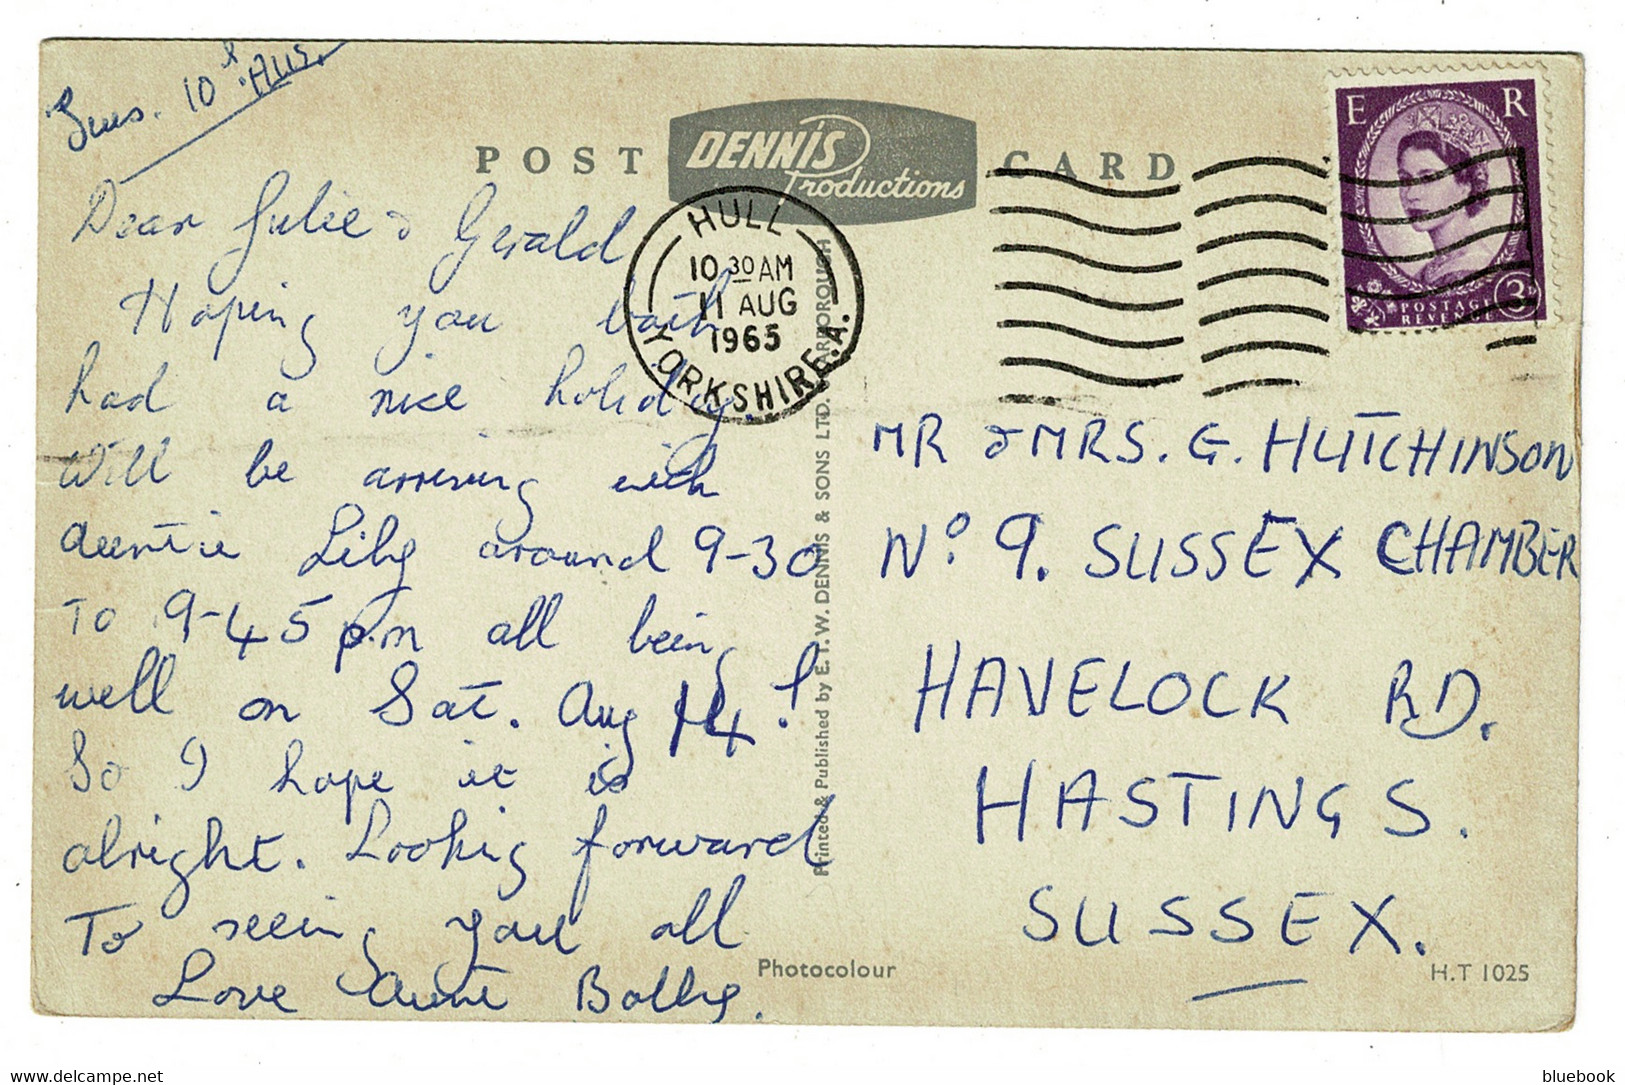 10 Aug.
POST CARD
DENNIS
Productions
HULL
10 30 AM
11 AUG
1965
YORKSHIRE.A.
E R
POSTAGE
REVENUE
3D
Dear Julie & Gerald
Hoping you both
had a nice holiday.
Will be arriving with
Auntie Lily around 9-30
To 9-45 p.m all being
well on Sat. Aug 14
So I hope it is
alright. Looking forward
To seeing you all
Love Aunt
MR & MRS. G. HUTCHINSON
No 9. SUSSEX CHAMBER
HAVELOCK RD.
HASTINGS.
SUSSEX.
Printed & Published by E. T. W. DENNIS & SONS LTD. SCARBOROUGH
Photocolour
H.T 1025
www.delcampe.net
bluebook